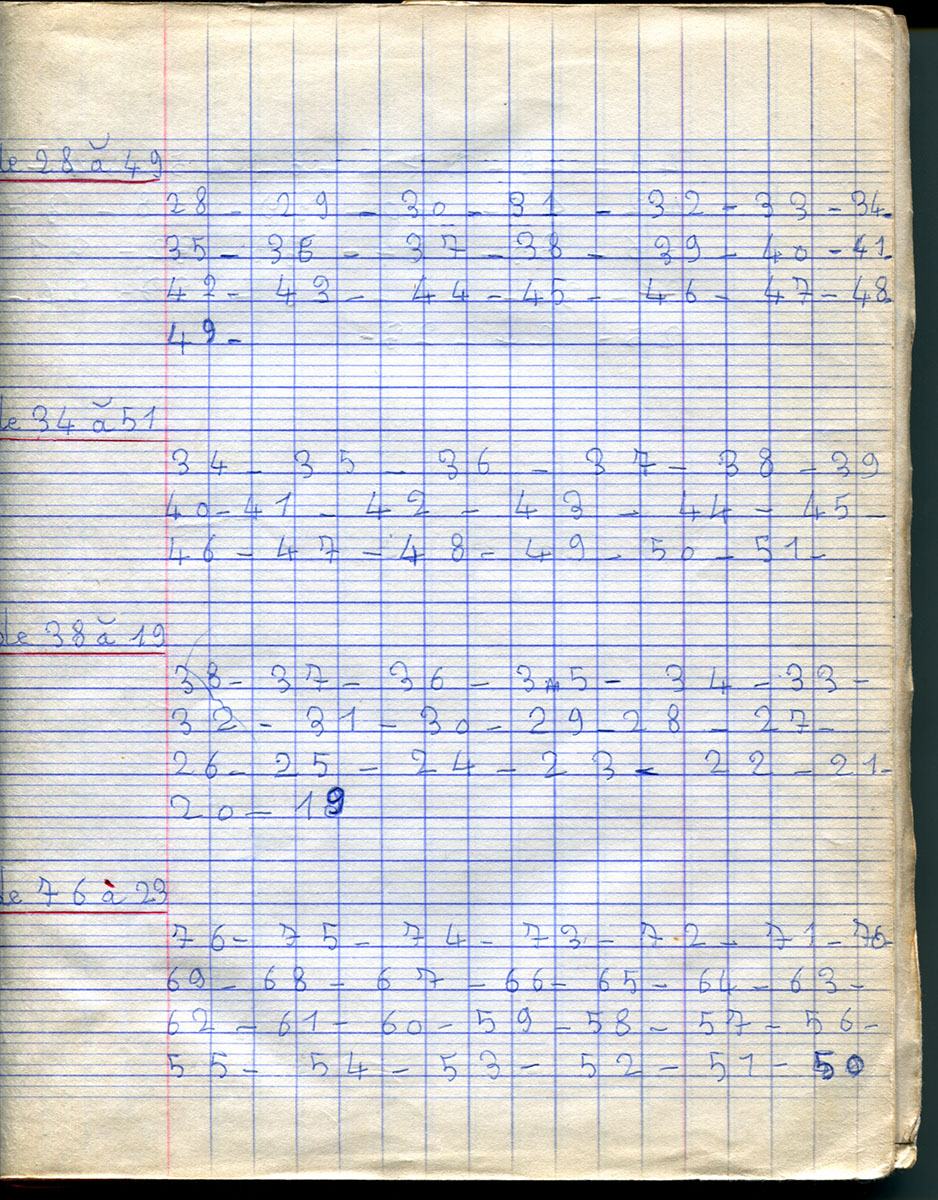 de 28 à 49
28 - 29 - 30 - 31 - 32 - 33 - 34-
35 - 36 - 37 - 38 - 39 - 40 - 41-
42 - 43 - 44 - 45 - 46 - 47 - 48
49 -
de 34 à 51
34 - 35 - 36 - 37 - 38 - 39
40 - 41 - 42 - 43 - 44 - 45 -
46 - 47 - 48 - 49 - 50 - 51 -
de 38 à 19
38 - 37 - 36 - 35 - 34 - 33 -
32 - 31 - 30 - 29 - 28 - 27 -
26 - 25 - 24 - 23 - 22 - 21 -
20 - 19
de 76 à 23
76 - 75 - 74 - 73 - 72 - 71 - 70
69 - 68 - 67 - 66 - 65 - 64 - 63 -
62 - 61 - 60 - 59 - 58 - 57 - 56 -
55 - 54 - 53 - 52 - 51 - 50